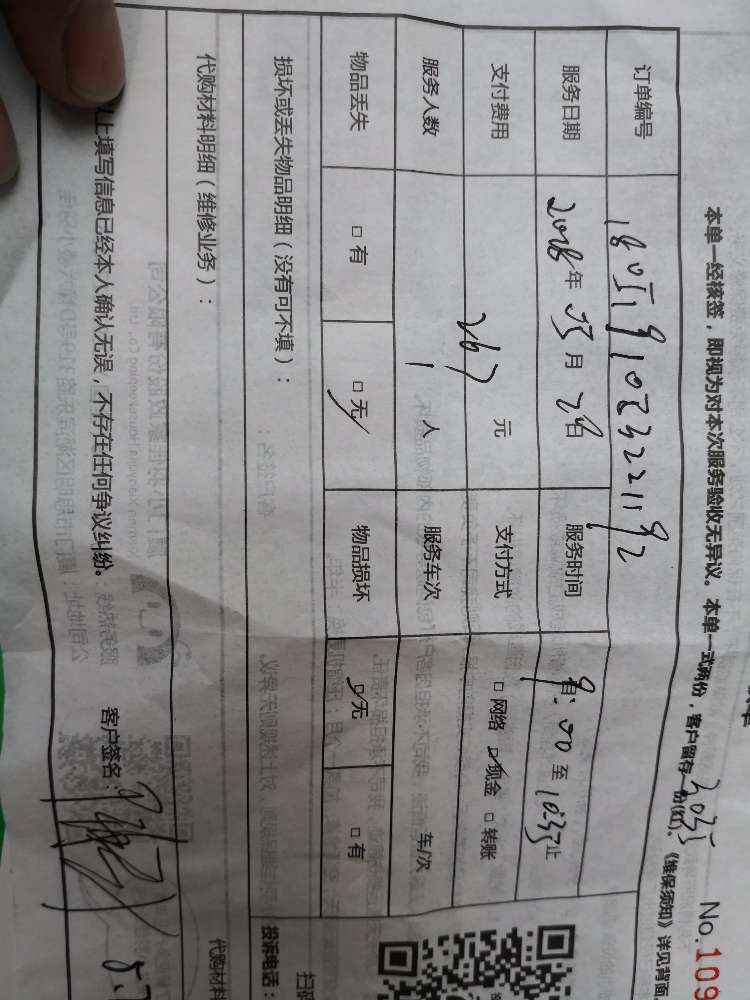 No.109
本单一经核签，即视为对本次服务验收无异议。本单一式两份，客户留存一份(红)。《维保须知》详见背面
订单编号
服务日期 2018年 05月 29日 服务时间 自9:00至10:33止
支付费用 267 元 支付方式 □网络 ☑现金 □转账
服务人数 1 人 服务车次 车/次
物品丢失 □有 ☑无 物品损坏 ☑无 □有
损坏或丢失物品明细（没有可不填）：
代购材料明细（维修业务）：
代购材料
投诉电话：
上填写信息已经本人确认无误，不存在任何争议纠纷。 客户签名：